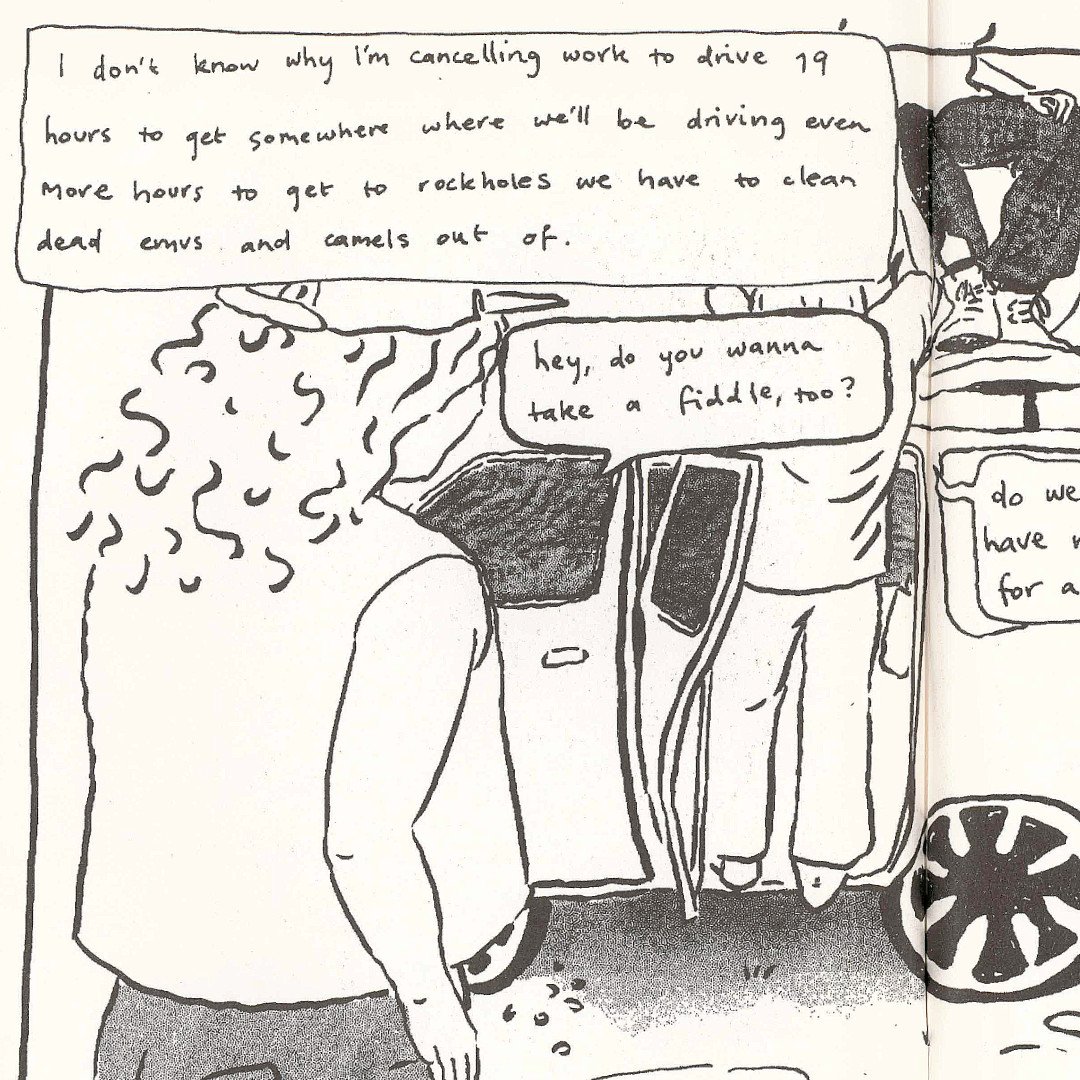 I don't know why I'm cancelling work to drive 19
hours to get somewhere where we'll be driving even
more hours to get to rockholes we have to clean
dead emus and camels out of.
hey, do you wanna
take a fiddle, too?
do we
have
for a